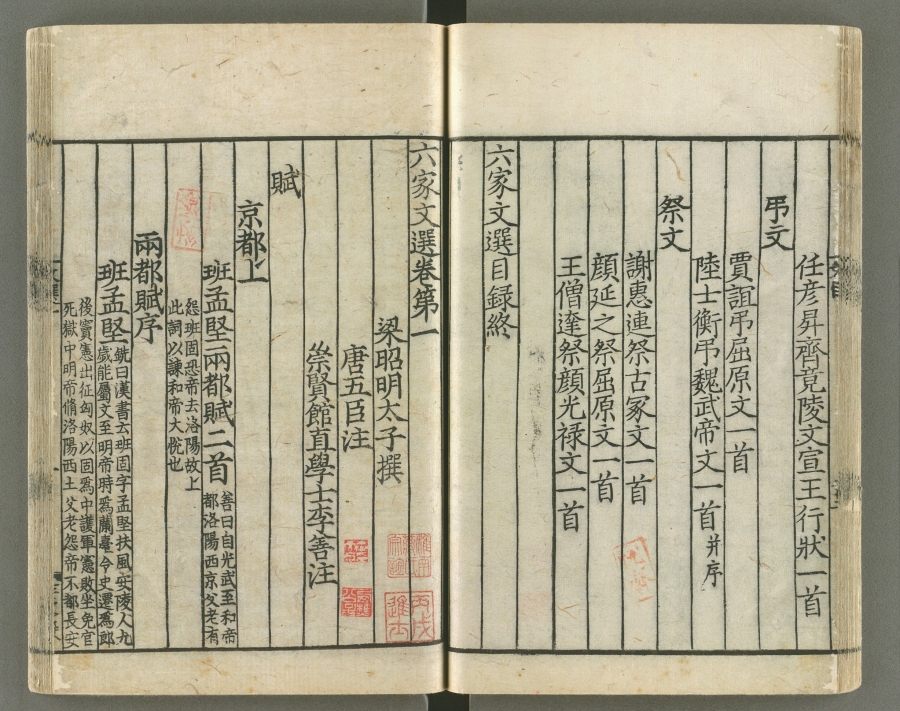 任彦昇齊竟陵文宣王行狀一首
弔文
賈誼弔屈原文一首
陸士衡弔魏武帝文一首并序
祭文
謝惠連祭古冢文一首
顔延之祭屈原文一首
王僧達祭顔光禄文一首
六家文選目録終
六家文選卷第一
梁昭明太子撰
唐五臣注
崇賢館直學士李善注
賦
京都上
班孟堅兩都賦二首
善曰自光武至和帝
都洛陽西京父老有
怨班固恐帝去洛陽故上
此詞以諫和帝大悅也
兩都賦序
班孟堅
銑曰漢書云班固字孟堅扶風安陵人九
歲能屬文至明帝時爲蘭臺令史遷爲郎
後竇憲出征匈奴以固爲中護軍憲敗坐免官
死獄中明帝脩洛陽西土父老怨帝不都長安
丙戌
進士